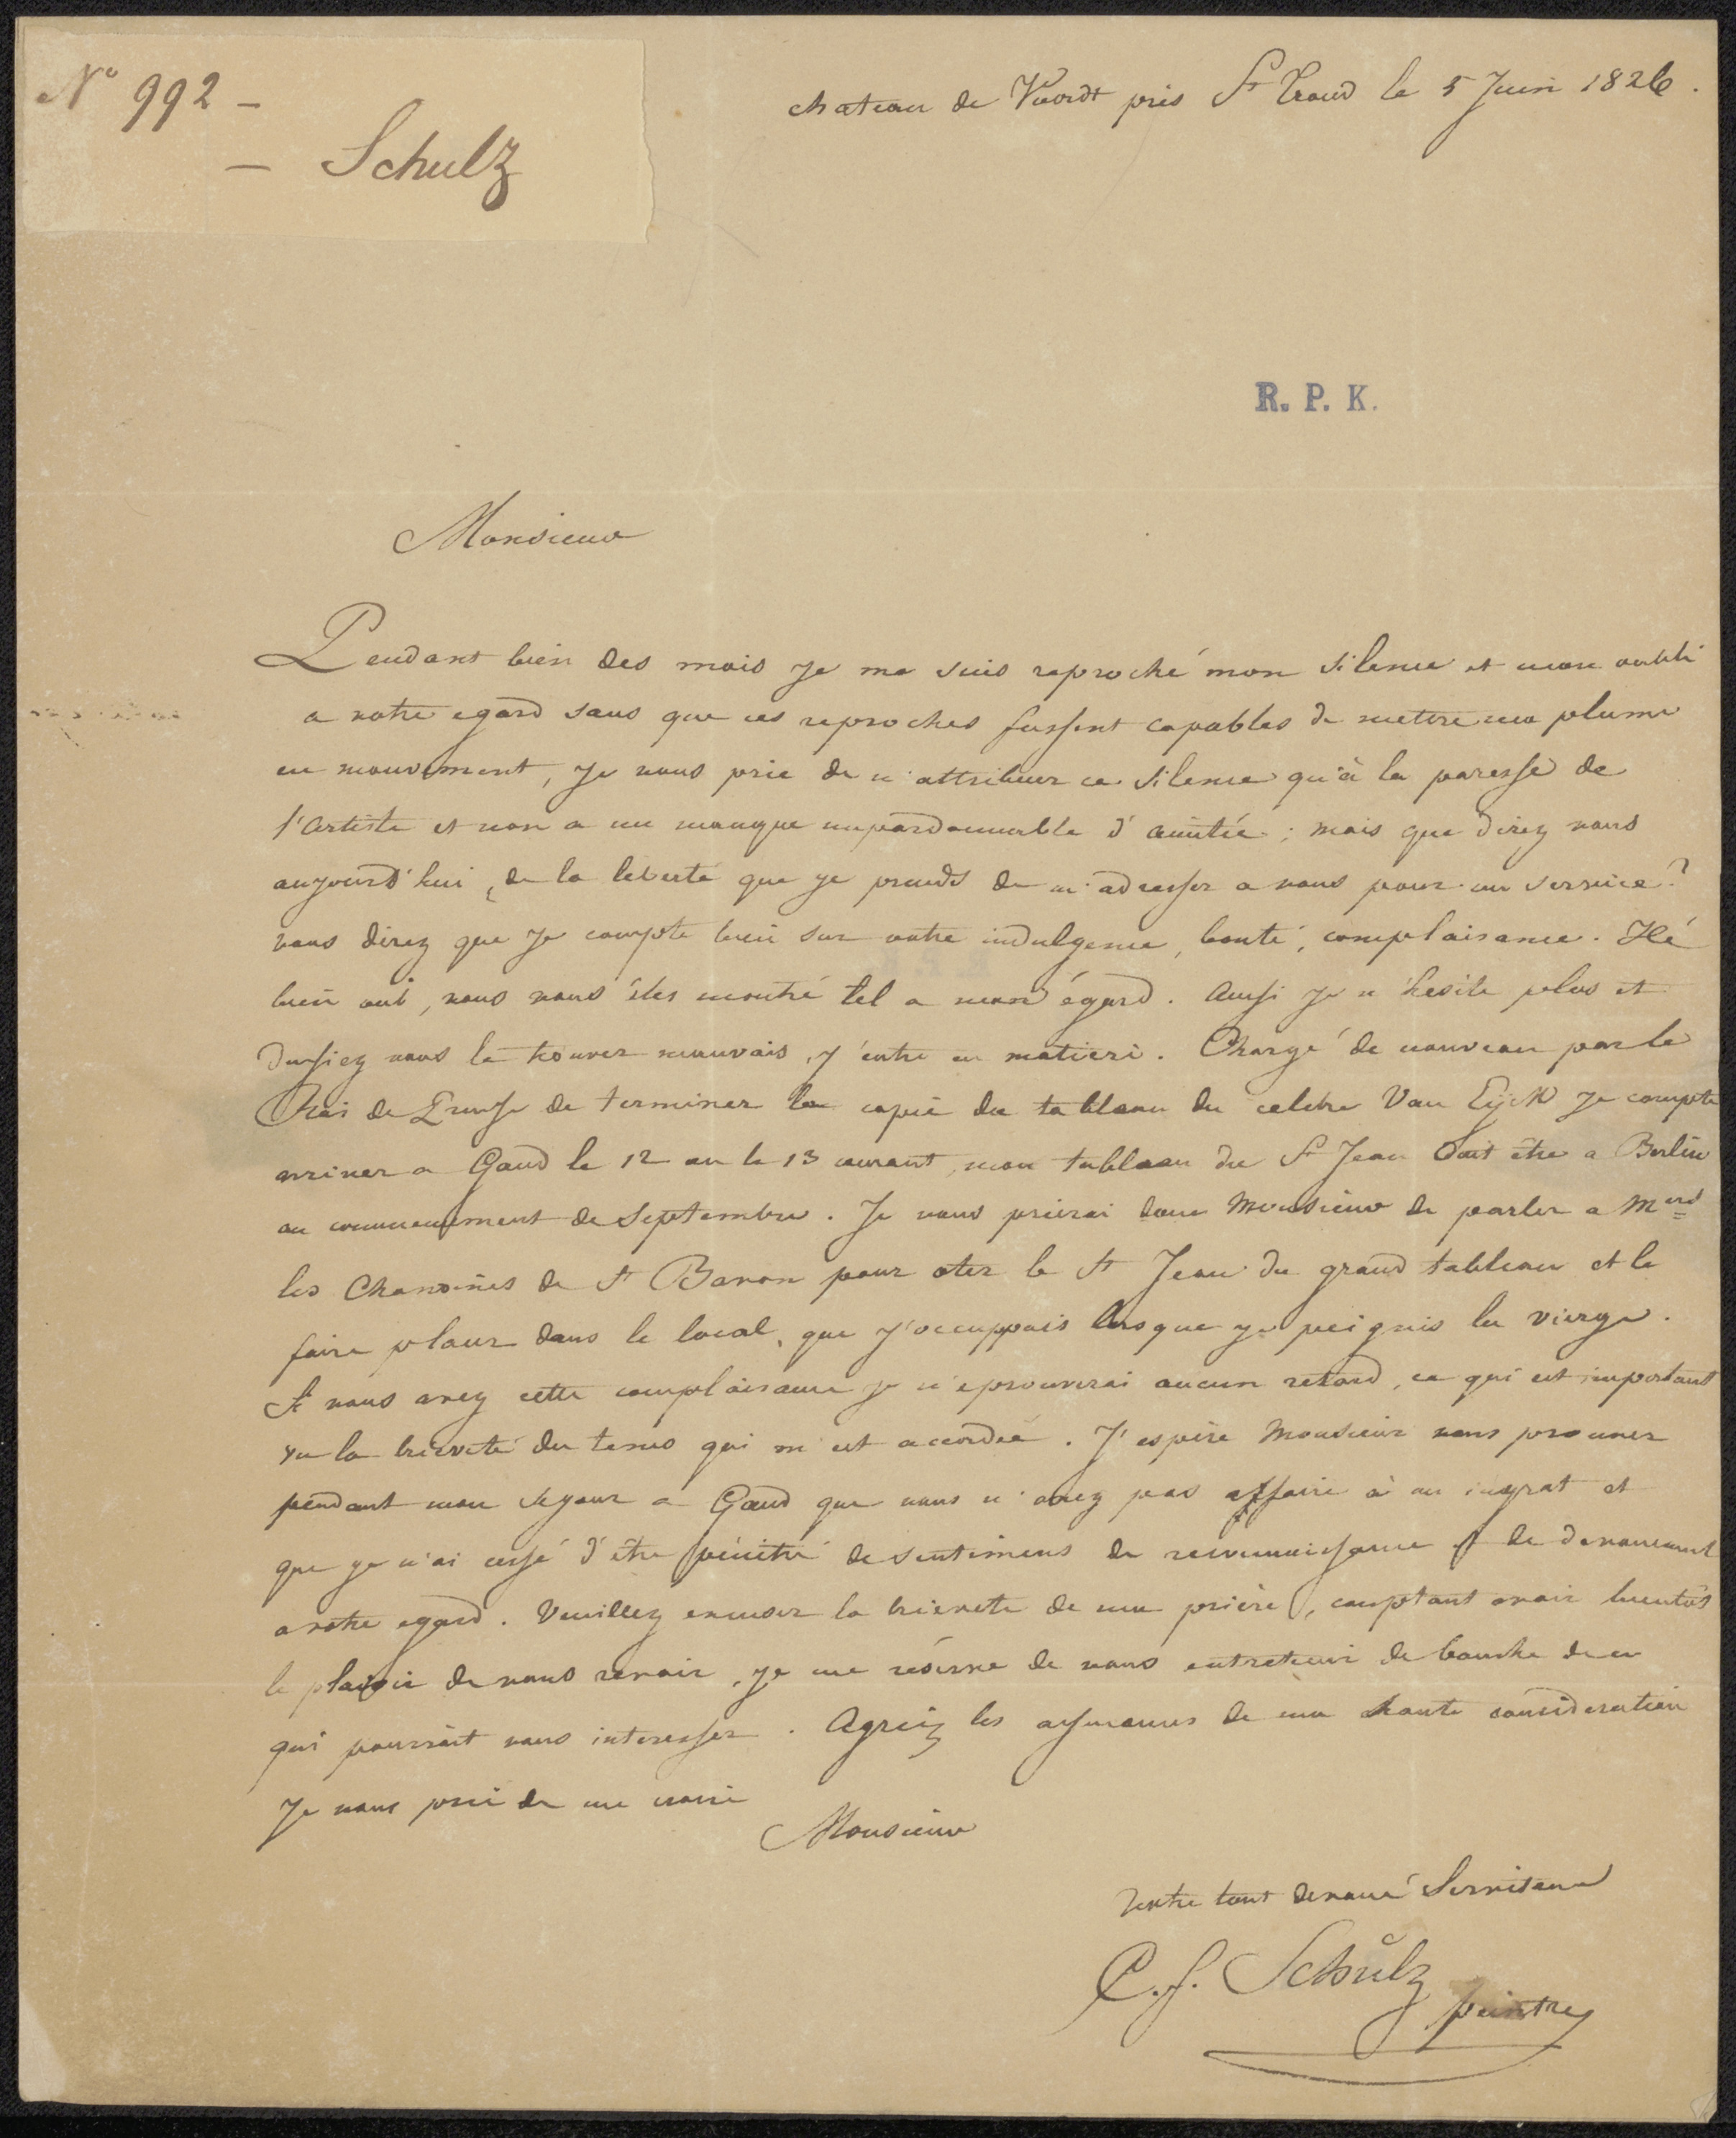 N° 992 –
– Schulz
chateau de Voordt près St Trond le 5 Juin 1826.
R. P. K.
Monsieur
Pendant bien des mois je me suis reproché mon silence et mon oubli
a votre egard sans que ces reproches fussent capables de mettre ma plume
en mouvement, je vous prie de n'attribuer ce silence qu'à la paresse de
l'artiste et non a un manque impardonnable d'amitiée; mais que direz vous
aujourd'hui, de la liberté que je prends de m'adresser a vous pour un service?
vous direz que je compte bien sur votre indulgence, bonté, complaisance. Hé
bien oui, vous vous êtes montré tel a mon égard. Aussi je n'hesite plus et
dussiez vous le trouver mauvais, j'entre en matiere. Chargé de nouveau par le
Roi de Prusse de terminer la copie du tableau du celebre Van Eyck je compte
arriver a Gand le 12 ou le 13 courant, mon tableau du St Jean doit être a Berlin
au commencement de Septembre. Je vous prierai donc Monsieur de parler a Mrs
les Chanoines de St Bavon pour oter le St Jean du grand tableau et le
faire placer dans le local, que j'occuppais lorsque je peignis la vierge.
Si vous avez cette complaisance je n'eprouverai aucun retard, ce qui est important
vu la brieveté du tems qui m'est accordée. J'espère Monsieur vous prouver
pendant mon sejour a Gand que vous n'avez pas affaire à un ingrat et
que je n'ai cessé d'être pénétré de sentimens de reconnaissance et de devouement
a votre egard. Veuillez excuser la brieveté de ma prière, comptant avoir bientôt
le plaisir de vous revoir, je me réserve de vous entretenir de bouche de ce
qui pourrait vous interesser. Agréez les assurances de ma haute consideration
Je vous prie de me croire
Monsieur
Votre tout devoué Serviteur
C. f. Schulz
peintre